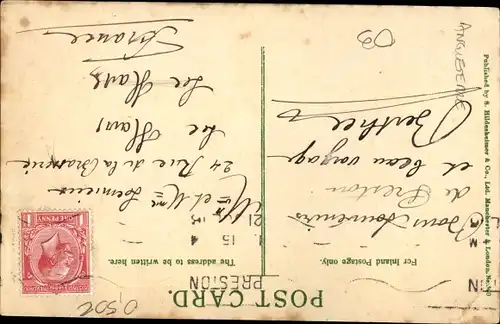 POST CARD.
For Inland Postage only.
The address to be written here.
PRESTON
4 15
21
ONE PENNY
1
Bons Souvenirs
de Preston
et beau voyage
Berthe
Mr et Mme
24 Rue de la Brasserie
Le Hans
France
Published by S. Hildesheimer & Co., Ltd. Manchester & London. No.
ANGLETERRE
0,50€